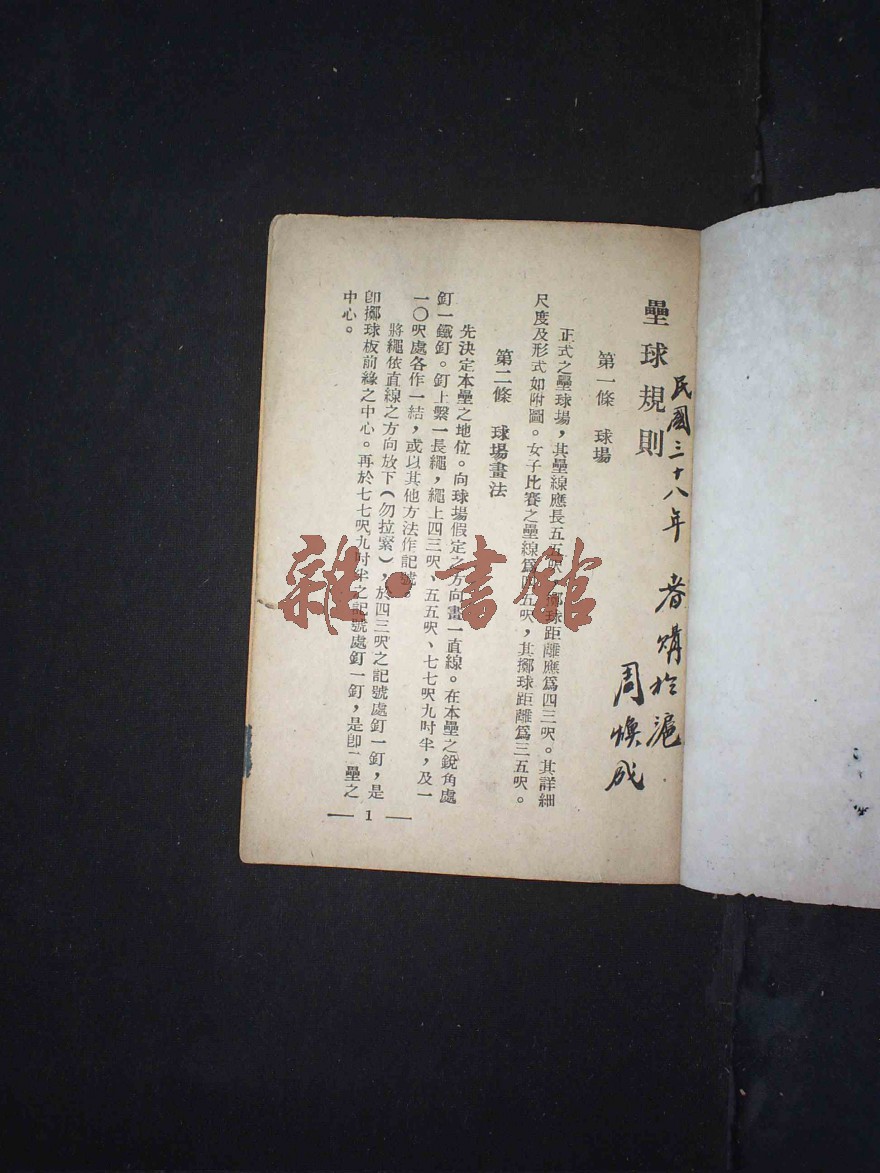 壘球規則
民國三十八年 春購於滬
周煥成
第一條 球場
正式之壘球場,其壘線應長五五呎,擲球距離應爲四三呎。其詳細
尺度及形式如附圖。女子比賽之壘線爲四五呎,其擲球距離爲三五呎。
第二條 球場畫法
先決定本壘之地位。向球場假定之方向畫一直線。在本壘之銳角處
釘一鐵釘。釘上繫一長繩,繩上四三呎、五五呎、七七呎九吋半,及一
一〇呎處各作一結,或以其他方法作記號。
將繩依直線之方向放下(勿拉緊),於四三呎之記號處釘一釘,是
卽擲球板前緣之中心。再於七七呎九吋半之記號處釘一釘,是卽二壘之
中心。
— 1 —
雜·書館